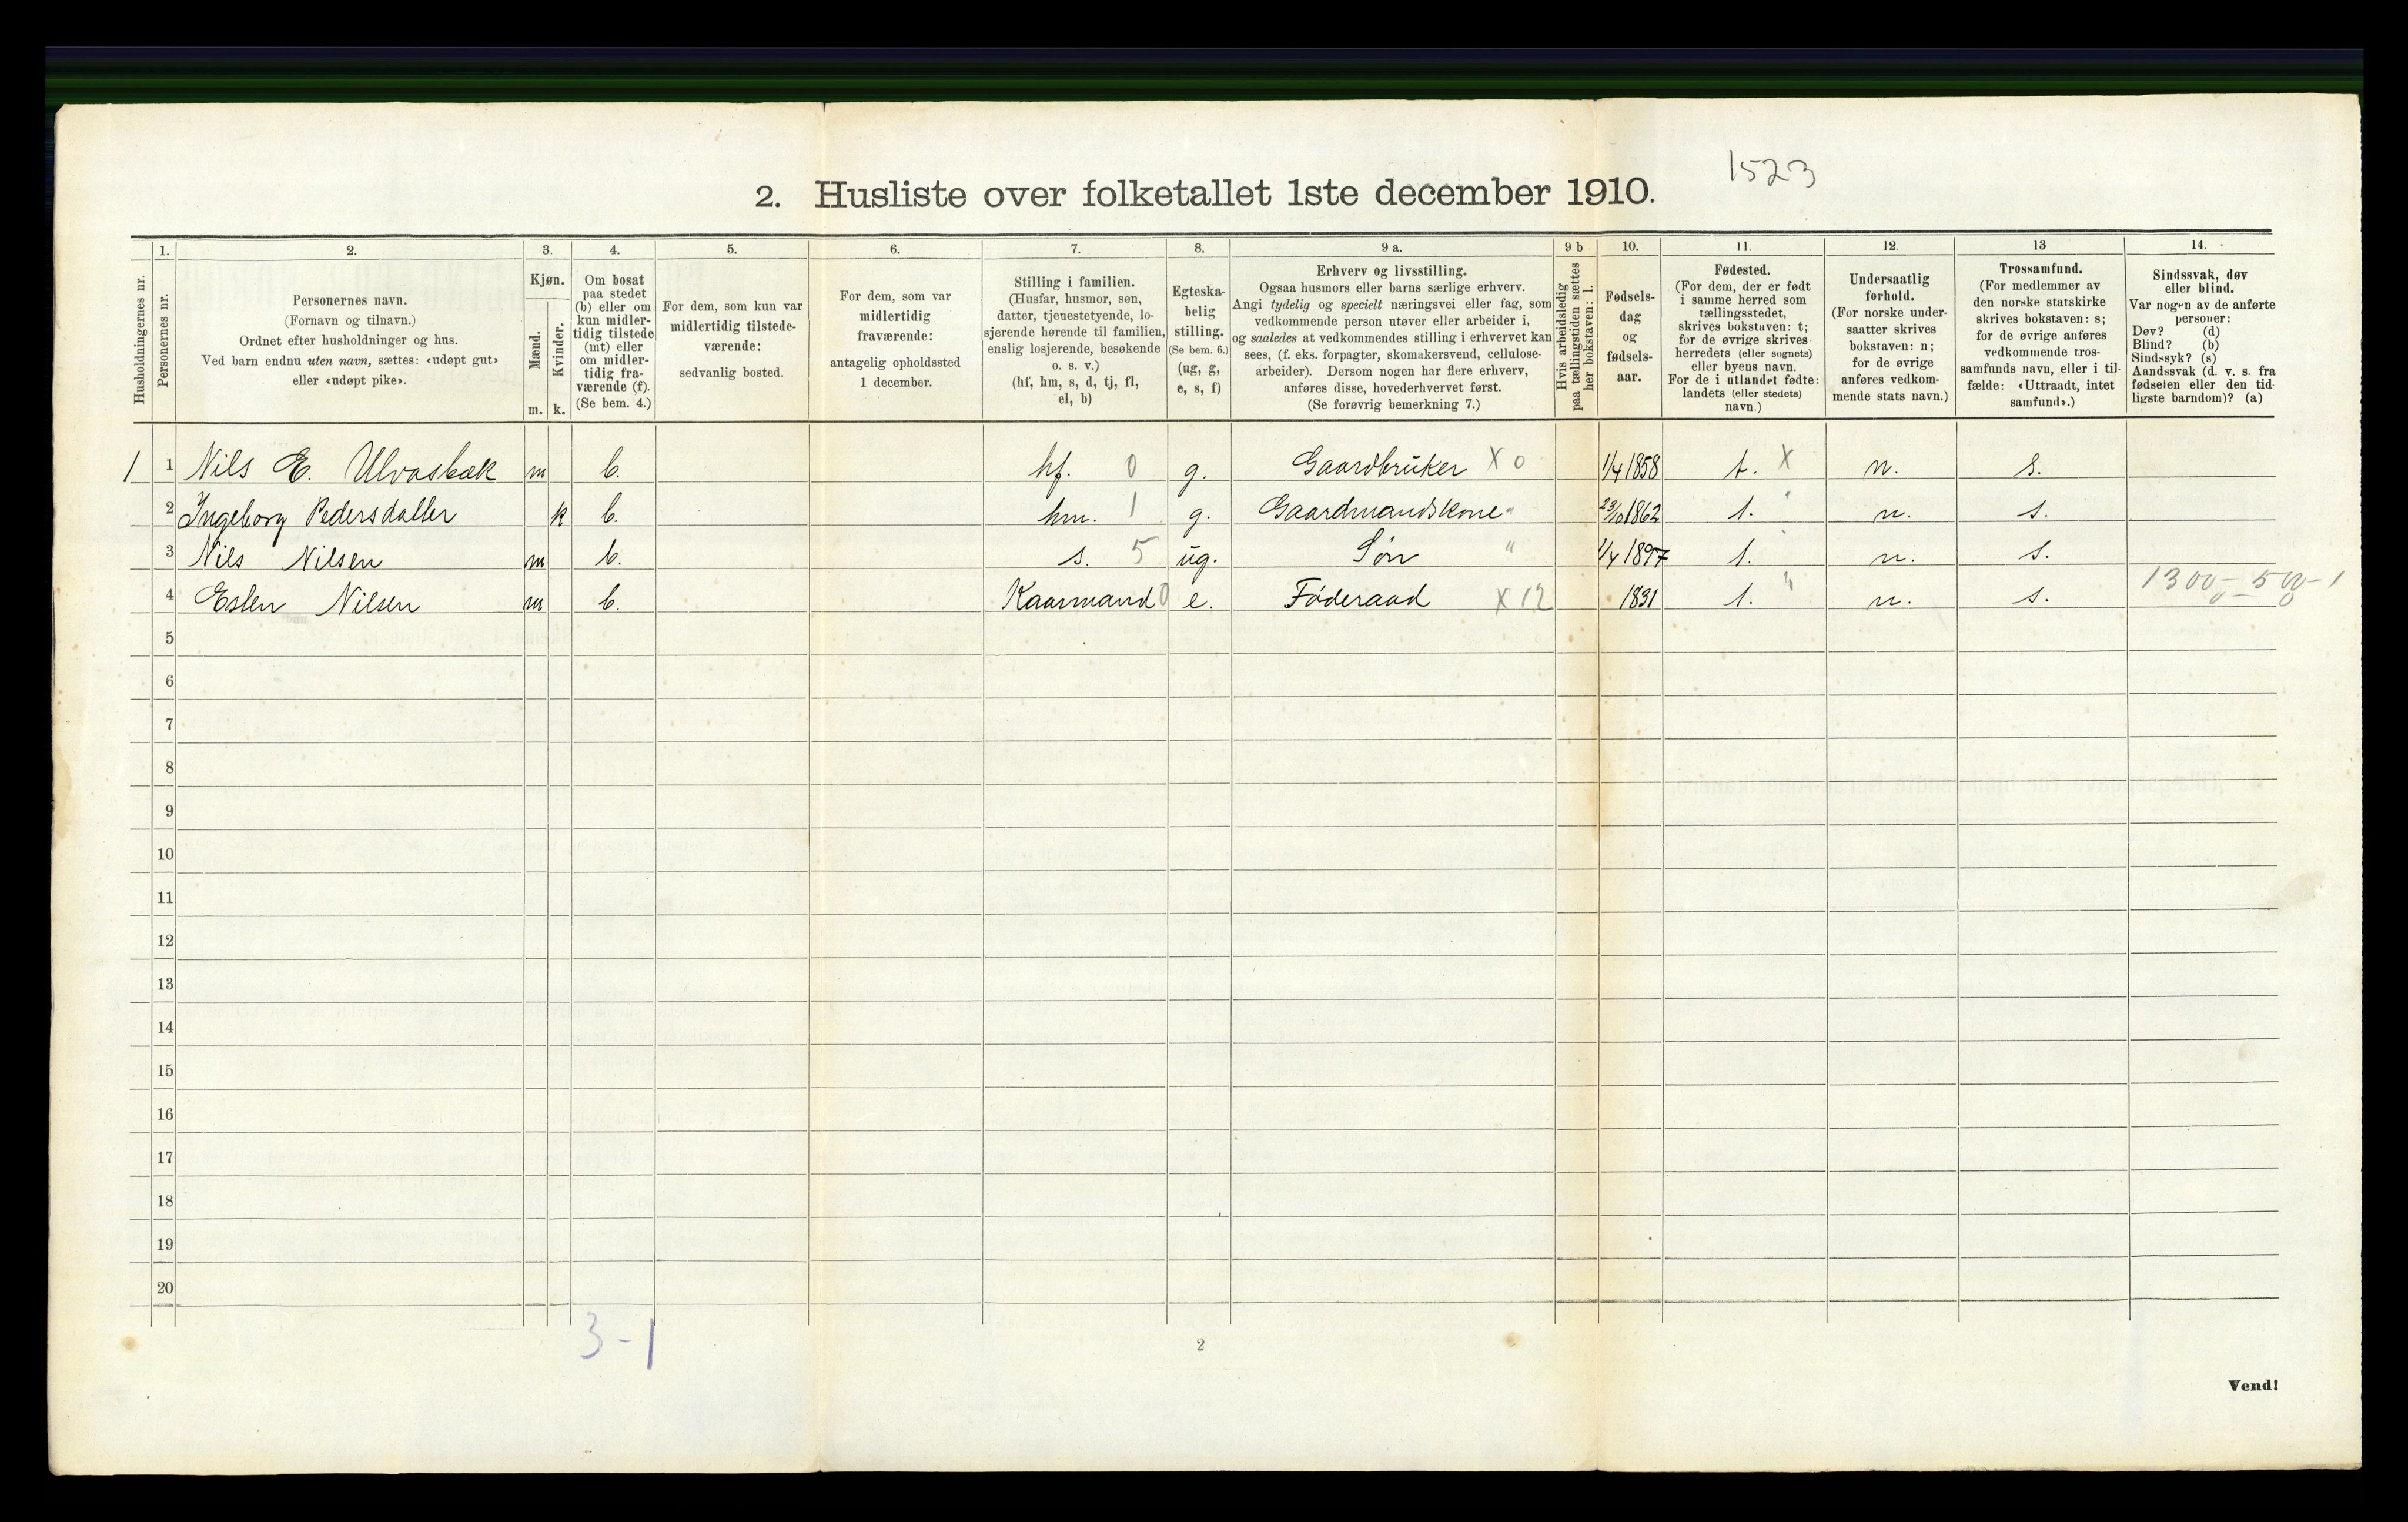 1523
2. Husliste over folketallet 1ste december 1910.
Husholdningernes nr.
1.
Personernes nr.
2.
Personernes navn.
(Fornavn og tilnavn.)
Ordnet efter husholdninger og hus.
Ved barn endnu uten navn, sættes: «udøpt gut»
eller «udøpt pike».
3.
Kjøn.
Mænd.
Kvinder.
m. k.
4.
Om bosat
paa stedet
(b) eller om
kun midler-
tidig tilstede
(mt) eller
om midler-
tidig fra-
værende (f).
(Se bem. 4.)
5.
For dem, som kun var
midlertidig tilstede-
værende:
sedvanlig bosted.
6.
For dem, som var
midlertidig
fraværende:
antagelig opholdssted
1 december.
7.
Stilling i familien.
(Husfar, husmor, søn,
datter, tjenestetyende, lo-
sjerende hørende til familien,
enslig losjerende, besøkende
o. s. v.)
(hf, hm, s, d, tj, fl,
el, b)
8.
Egteska-
belig
stilling.
(Se bem. 6.)
(ug, g,
e, s, f)
9 a.
Erhverv og livsstilling.
Ogsaa husmors eller barns særlige erhverv.
Angi tydelig og specielt næringsvei eller fag, som
vedkommende person utøver eller arbeider i,
og saaledes at vedkommendes stilling i erhvervet kan
sees, (f. eks. forpagter, skomakersvend, cellulose-
arbeider). Dersom nogen har flere erhverv,
anføres disse, hovederhvervet først.
(Se forøvrig bemerkning 7.)
9 b
Hvis arbeidsledig
paa tællingstiden sættes
her bokstaven: l.
10.
Fødsels-
dag
og
fødsels-
aar.
11.
Fødested.
(For dem, der er født
i samme herred som
tællingsstedet,
skrives bokstaven: t;
for de øvrige skrives
herredets (eller sognets)
eller byens navn.
For de i utlandet fødte:
landets (eller stedets)
navn.)
12.
Undersaatlig
forhold.
(For norske under-
saatter skrives
bokstaven: n;
for de øvrige
anføres vedkom-
mende stats navn.)
13
Trossamfund.
(For medlemmer av
den norske statskirke
skrives bokstaven: s;
for de øvrige anføres
vedkommende tros-
samfunds navn, eller i til-
fælde: «Uttraadt, intet
samfund».)
14.
Sindssvak, døv
eller blind.
Var nogen av de anførte
personer:
Døv? (d)
Blind? (b)
Sindssyk? (s)
Aandssvak (d. v. s. fra
fødselen eller den tid-
ligste barndom)? (a)
1 1 Nils E. Ulvasbæk m b. hf. 0 g. Gaardbruker X 0 1/4 1858 t. X n. s.
2 Ingeborg Pedersdatter k b. hm. 1 g. Gaardmandskone " 23/10 1862 t. " n. s.
3 Nils Nilsen m b. s. 5 ug. Søn " 1/4 1897 t. " n. s.
4 Eslen Nilsen m b. Kaarmand 0 e. Føderaad X 12 1831 t. " n. s. 1300 - 500 - 1
5
6
7
8
9
10
11
12
13
14
15
16
17
18
19
20
3-1
2
Vend!